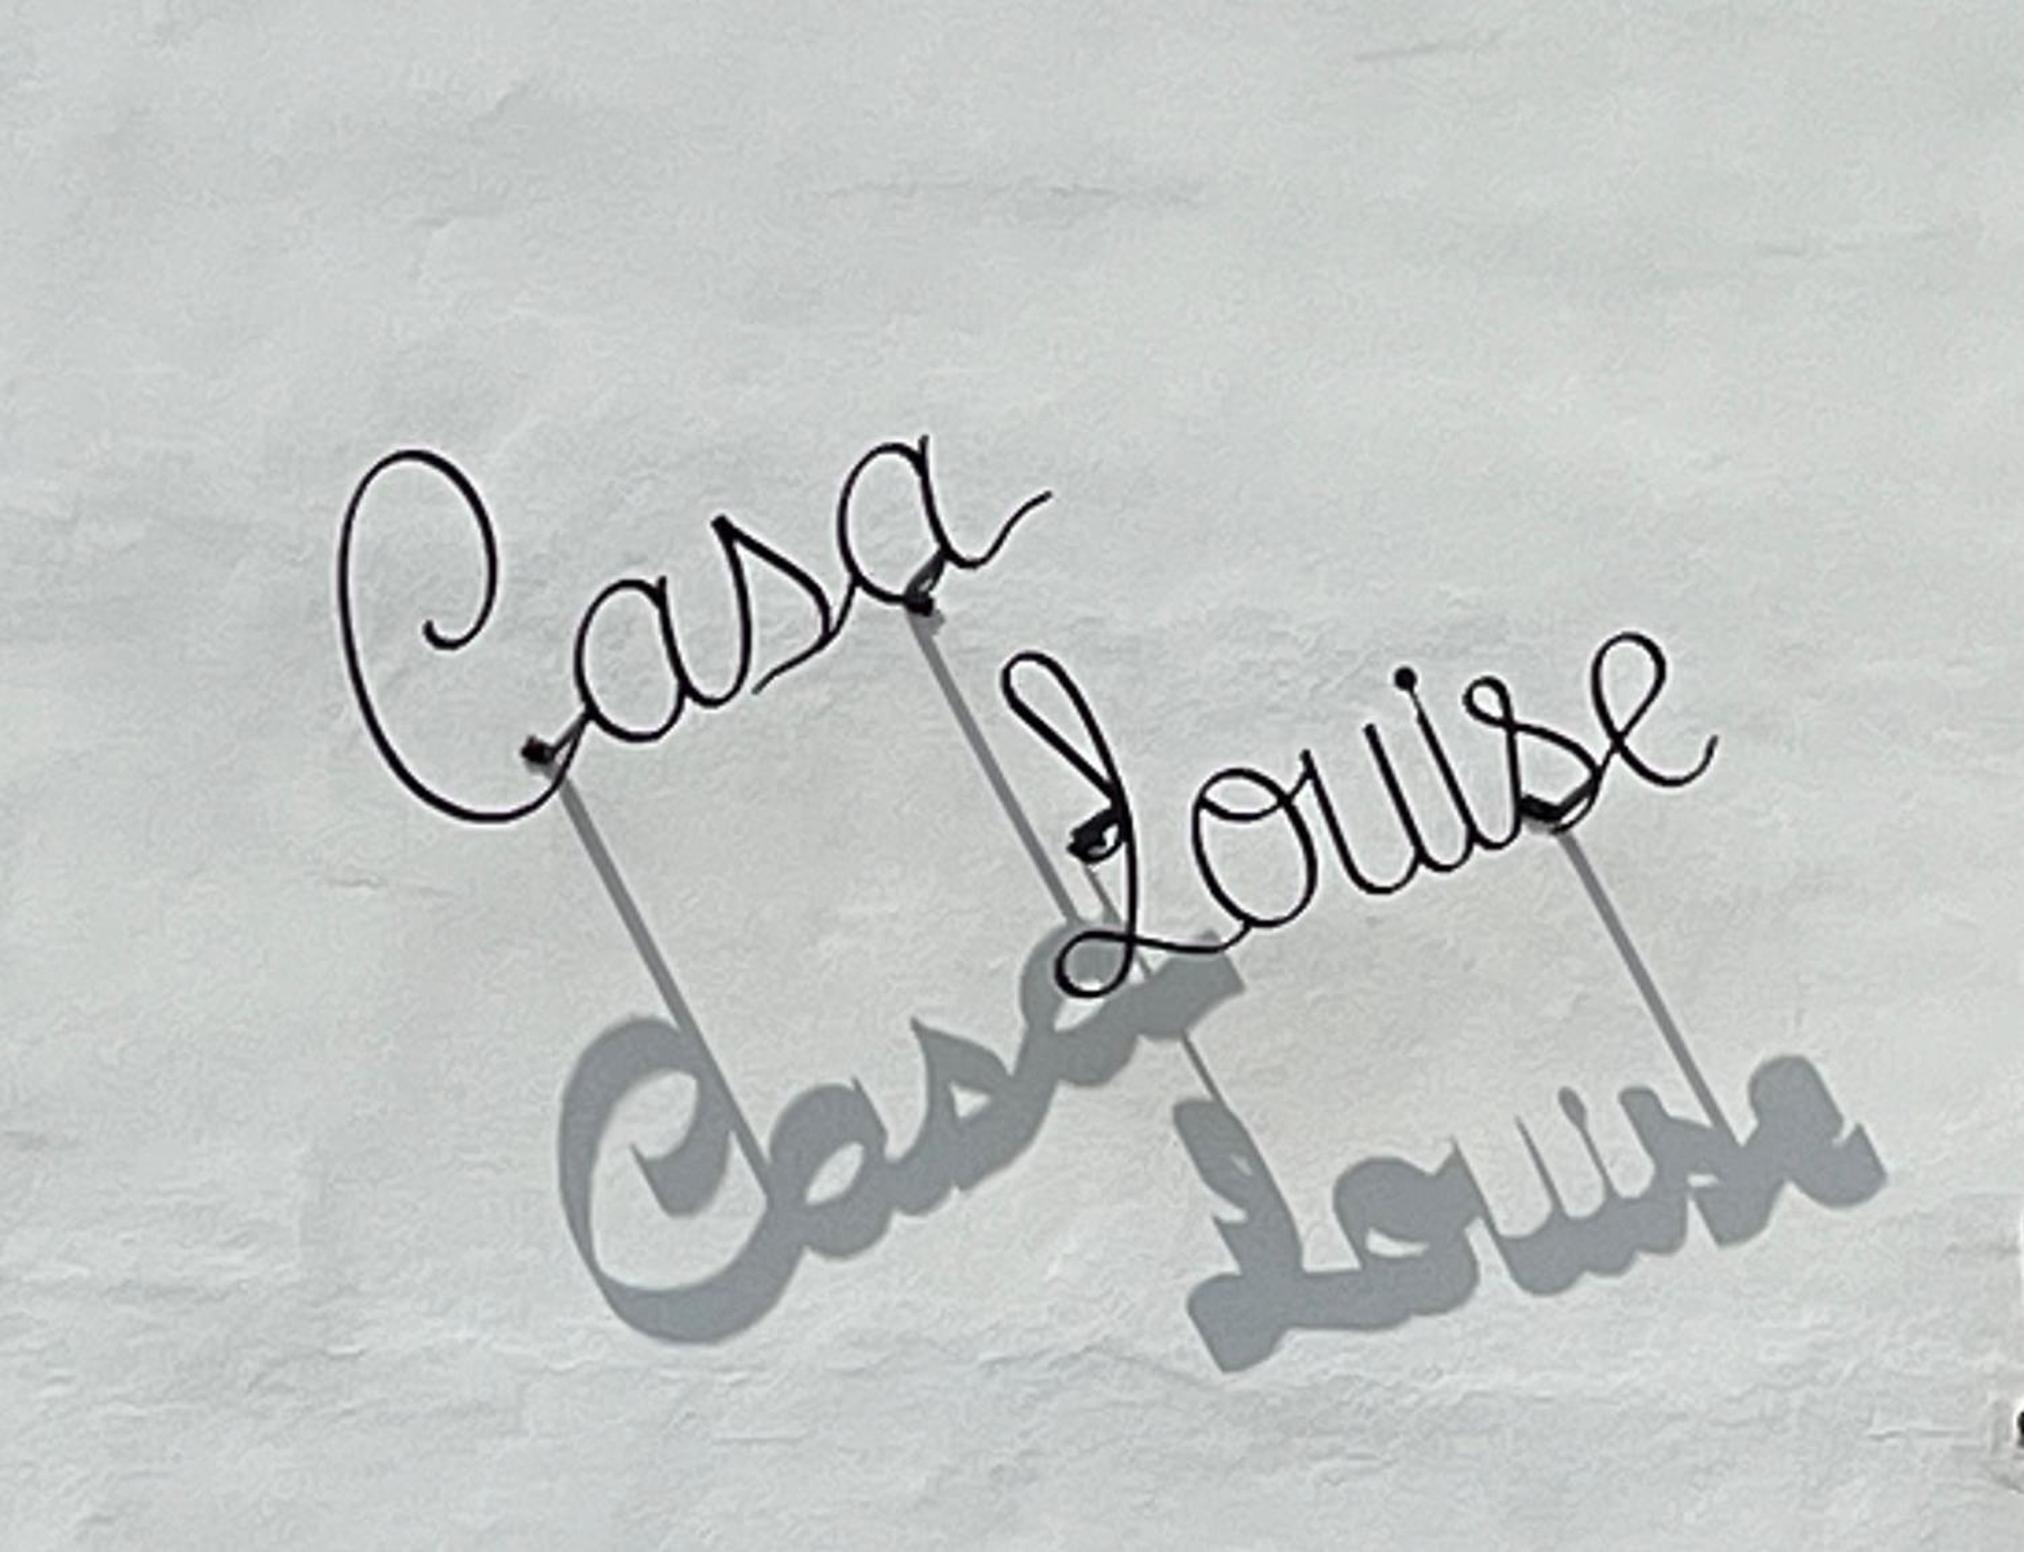 Casa
Louise